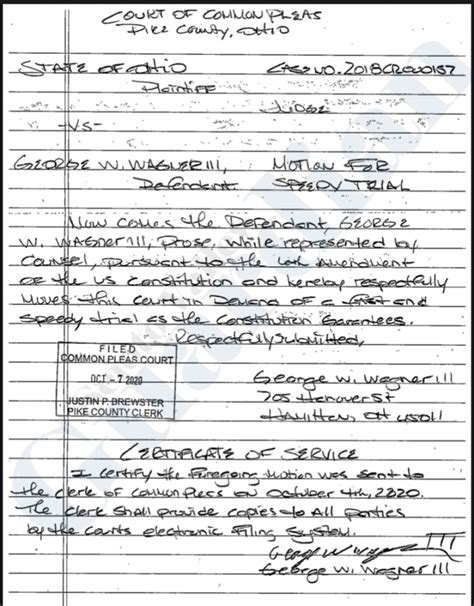 COURT OF COMMON PLEAS
PIKE COUNTY, OHIO
STATE OF OHIO CASE NO. 2018CR000157
Plaintiff
Judge
-VS-
GEORGE W. WAGNER III, MOTION FOR
Defendant SPEEDY TRIAL
Now comes the Defendant, GEORGE
W. WAGNER III, Prose, while represented by
Counsel, pursuant to the Amendment
of the US Constitution and hereby respectfully
moves this court in Demand of a fast and
speedy trial as the Constitution Garantees.
Respectfully submitted,
FILED
COMMON PLEAS COURT
OCT - 7 2020
JUSTIN P. BREWSTER
PIKE COUNTY CLERK
George W. Wagner III
705 Hanover St
HAMILTON, OH 45011
CERTIFICATE OF SERVICE
I certify the foregoing motion was sent to
the clerk of common Pleas on October 4th, 2020.
The clerk shall provide copies to All parties
by the courts electronic filing system.
George W Wagner III
George W. Wagner III